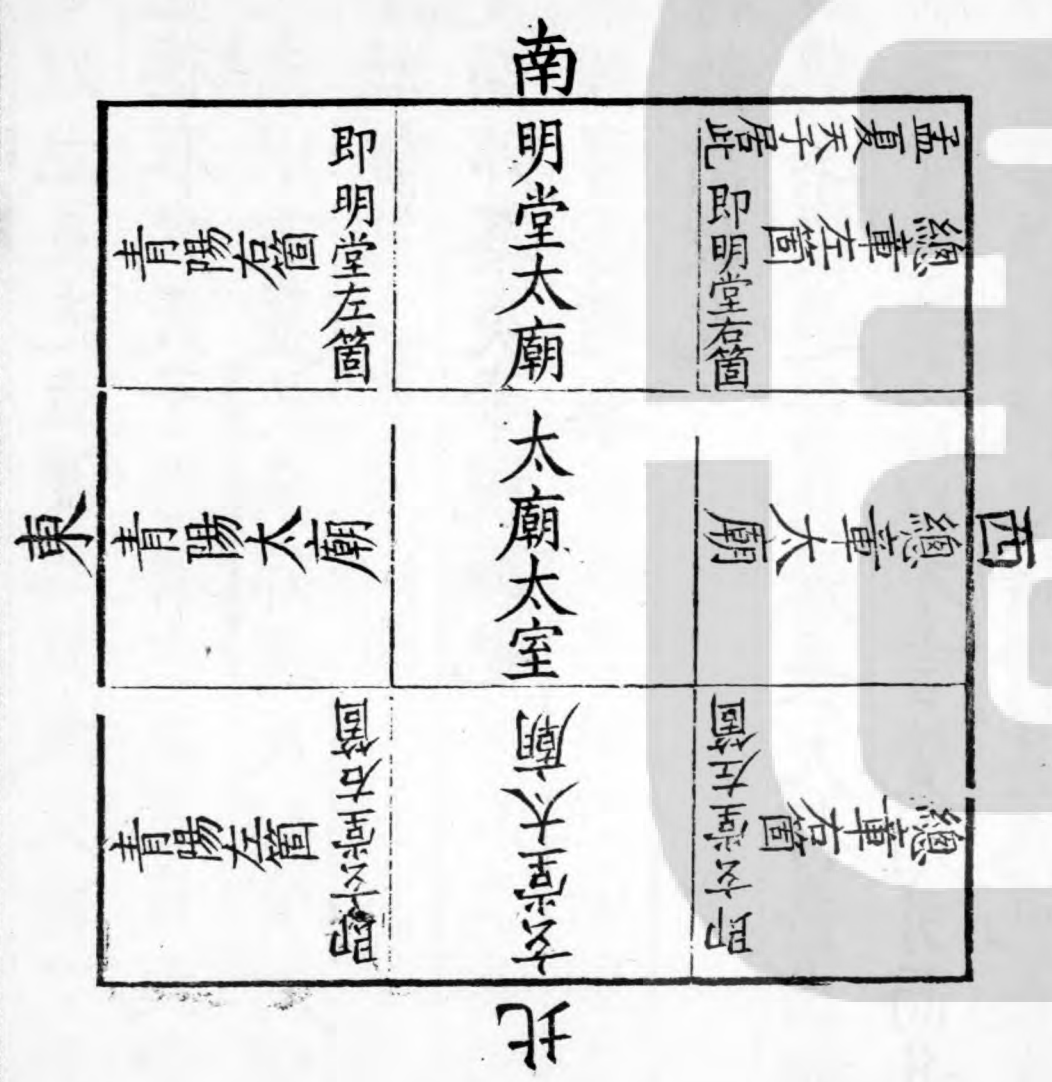 南
孟夏天子居此
總章左箇
即明堂右箇
明堂太廟
即明堂左箇
青陽右箇
西
總章太廟
太廟太室
青陽太廟
東
總章右箇
即玄堂左箇
玄堂太廟
即玄堂右箇
青陽左箇
北